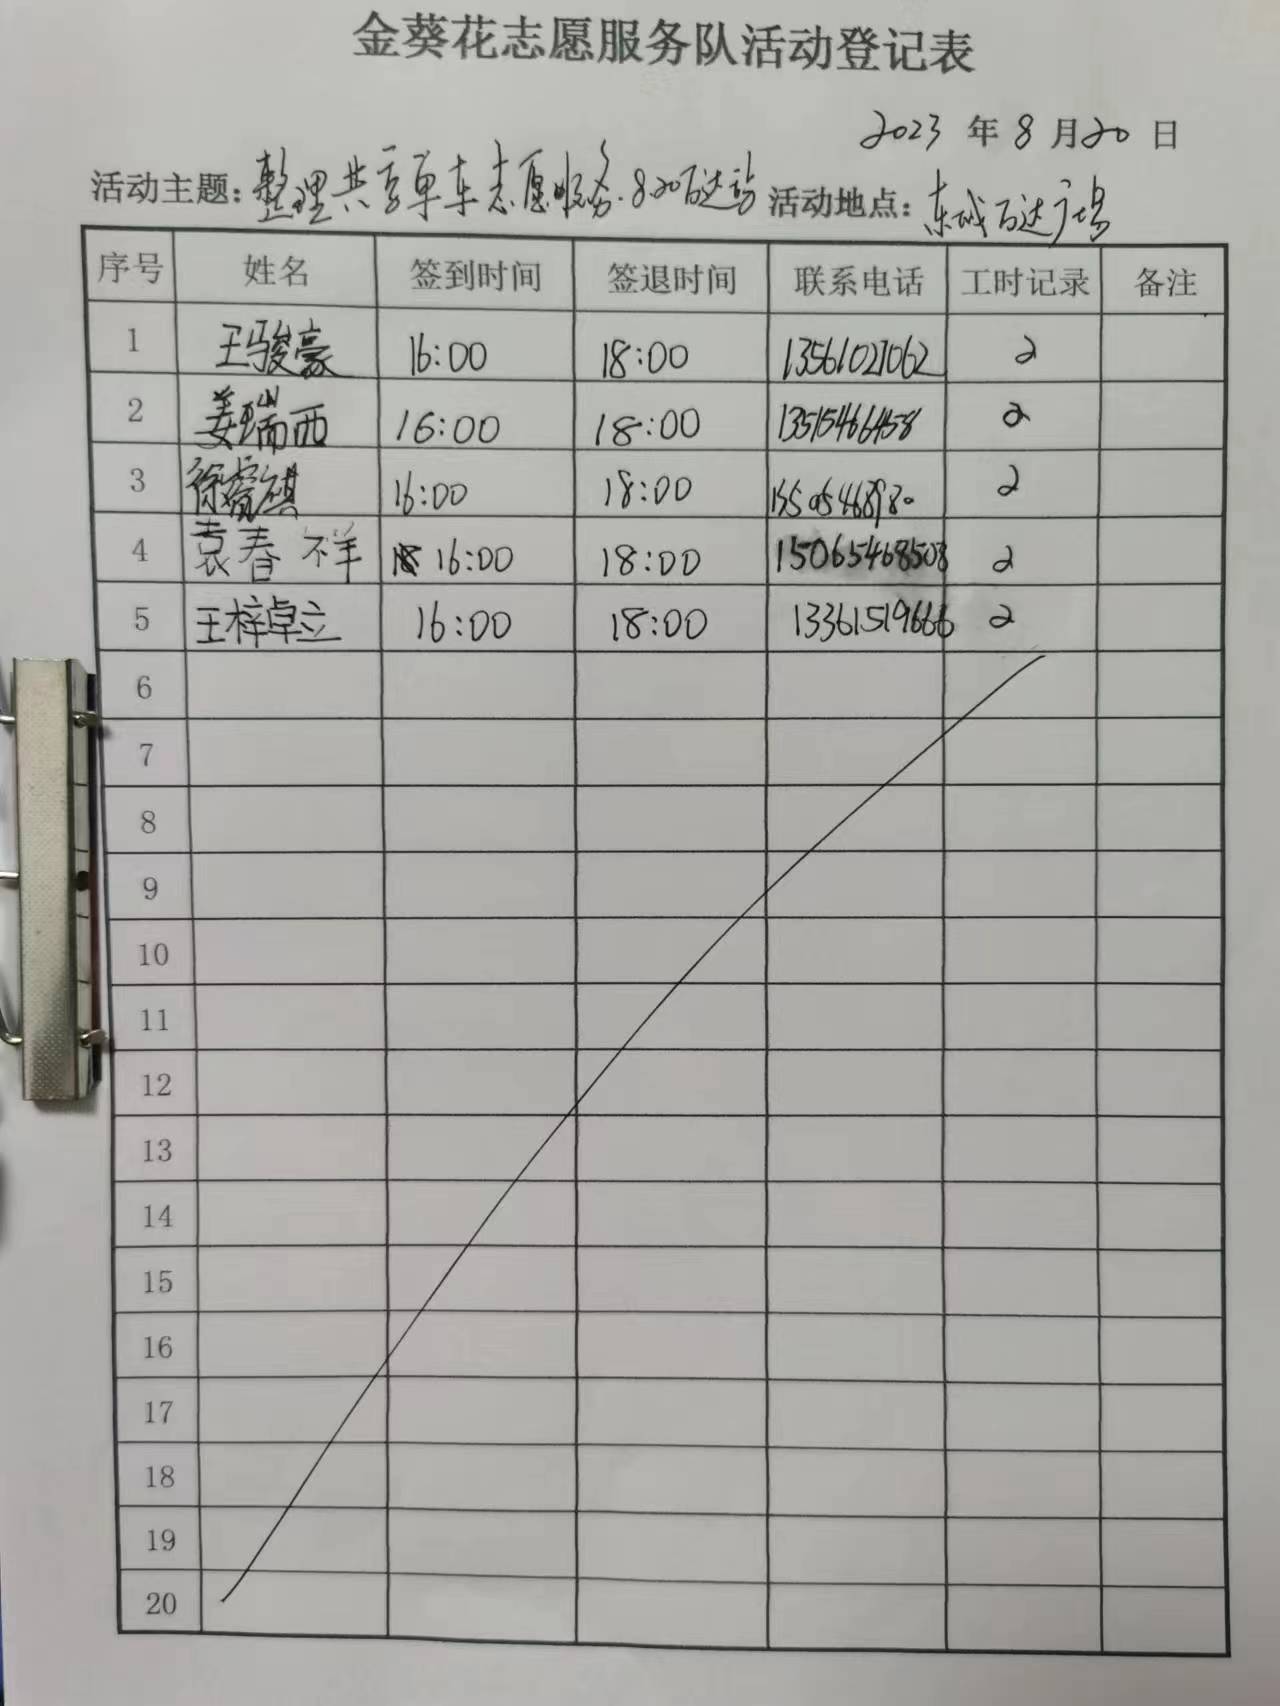 金葵花志愿服务队活动登记表
2023 年 8 月 20 日
活动主题: 整理共享单车志愿服务.820万达站 活动地点: 东城万达广场
序号 姓名 签到时间 签退时间 联系电话 工时记录 备注
1 王骏豪 16:00 18:00 13561021062 2
2 姜瑞西 16:00 18:00 13515466458 2
3 徐睿祺 16:00 18:00 2
4 袁春祥 16:00 18:00 15065468508 2
5 王梓卓立 16:00 18:00 13361519666 2
6
7
8
9
10
11
12
13
14
15
16
17
18
19
20